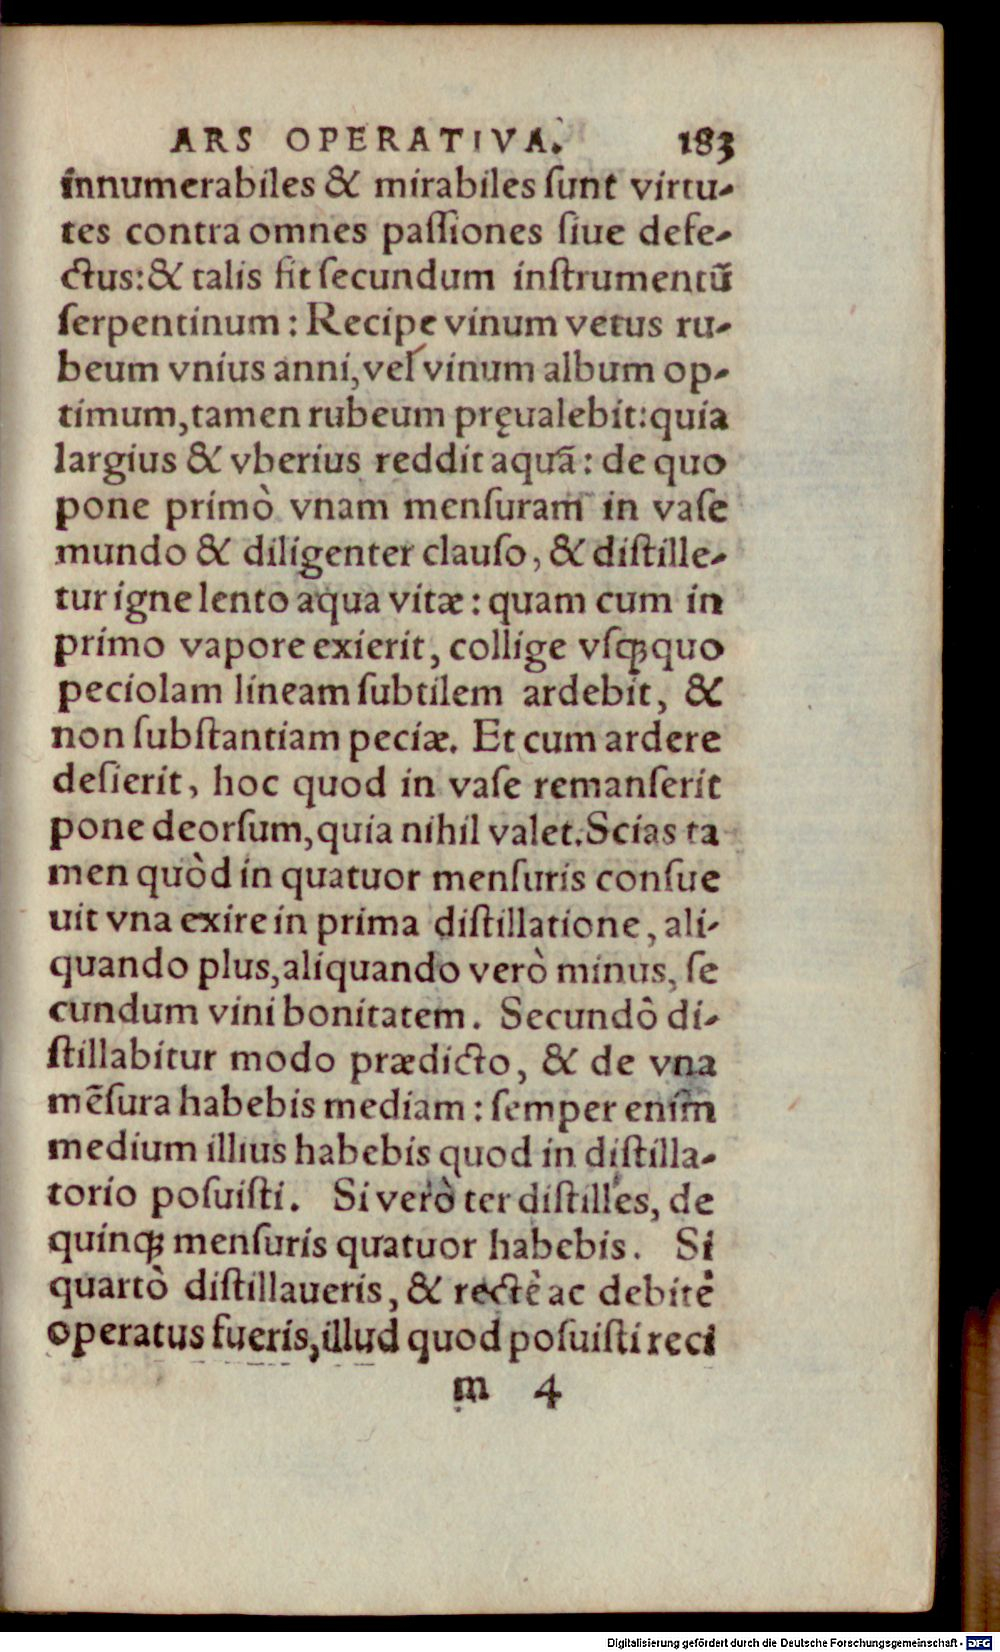 ARS OPERATIVA. 183
innumerabiles & mirabiles sunt virtu-
tes contra omnes passiones siue defe-
ctus: & talis fit secundum instrumentū
serpentinum: Recipe vinum vetus ru-
beum vnius anni, vel vinum album op-
timum, tamen rubeum pręualebit: quia
largius & vberius reddit aquā: de quo
pone primò vnam mensuram in vase
mundo & diligenter clauso, & distille-
tur igne lento aqua vitæ: quam cum in
primo vapore exierit, collige vsqꝫ quo
peciolam lineam subtilem ardebit, &
non substantiam peciæ. Et cum ardere
desierit, hoc quod in vase remanserit
pone deorsum, quia nihil valet. Scias ta
men quòd in quatuor mensuris consue
uit vna exire in prima distillatione, ali-
quando plus, aliquando verò minus, se
cundum vini bonitatem. Secundò di-
stillabitur modo prædicto, & de vna
mēsura habebis mediam: semper enim
medium illius habebis quod in distilla-
torio posuisti. Si verò ter distilles, de
quinqꝫ mensuris quatuor habebis. Si
quartò distillaueris, & rectè ac debitè
operatus fueris, illud quod posuisti reci
m 4
Digitalisierung gefördert durch die Deutsche Forschungsgemeinschaft - DFG